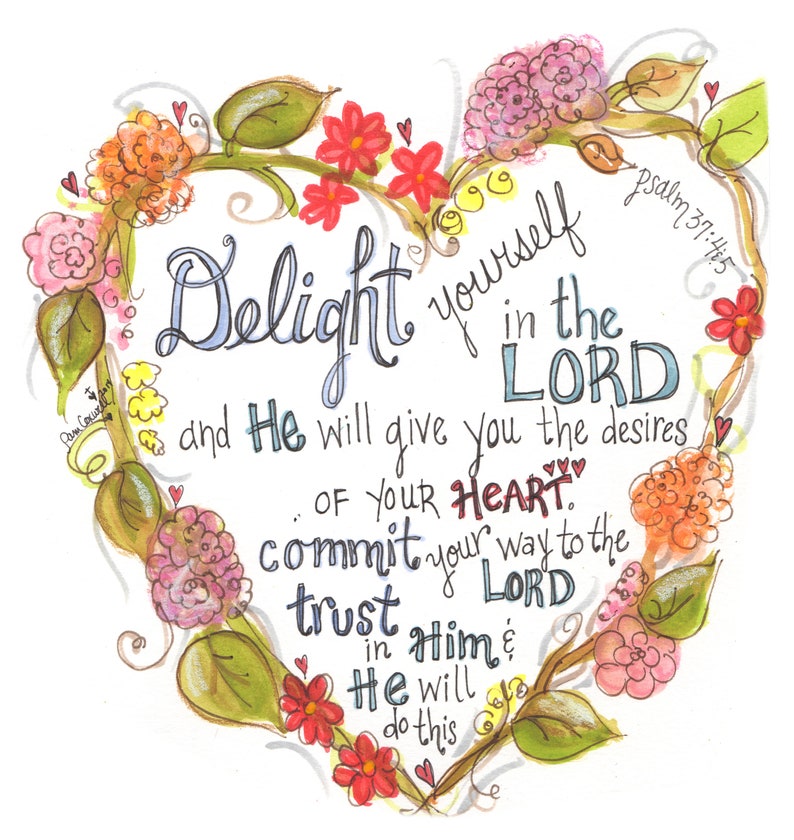 Delight yourself
psalm 37:4&5
in the
LORD
and He will give you the desires
OF YOUR HEART.
commit your way to the
LORD
trust
in Him &
He will
do this
2014